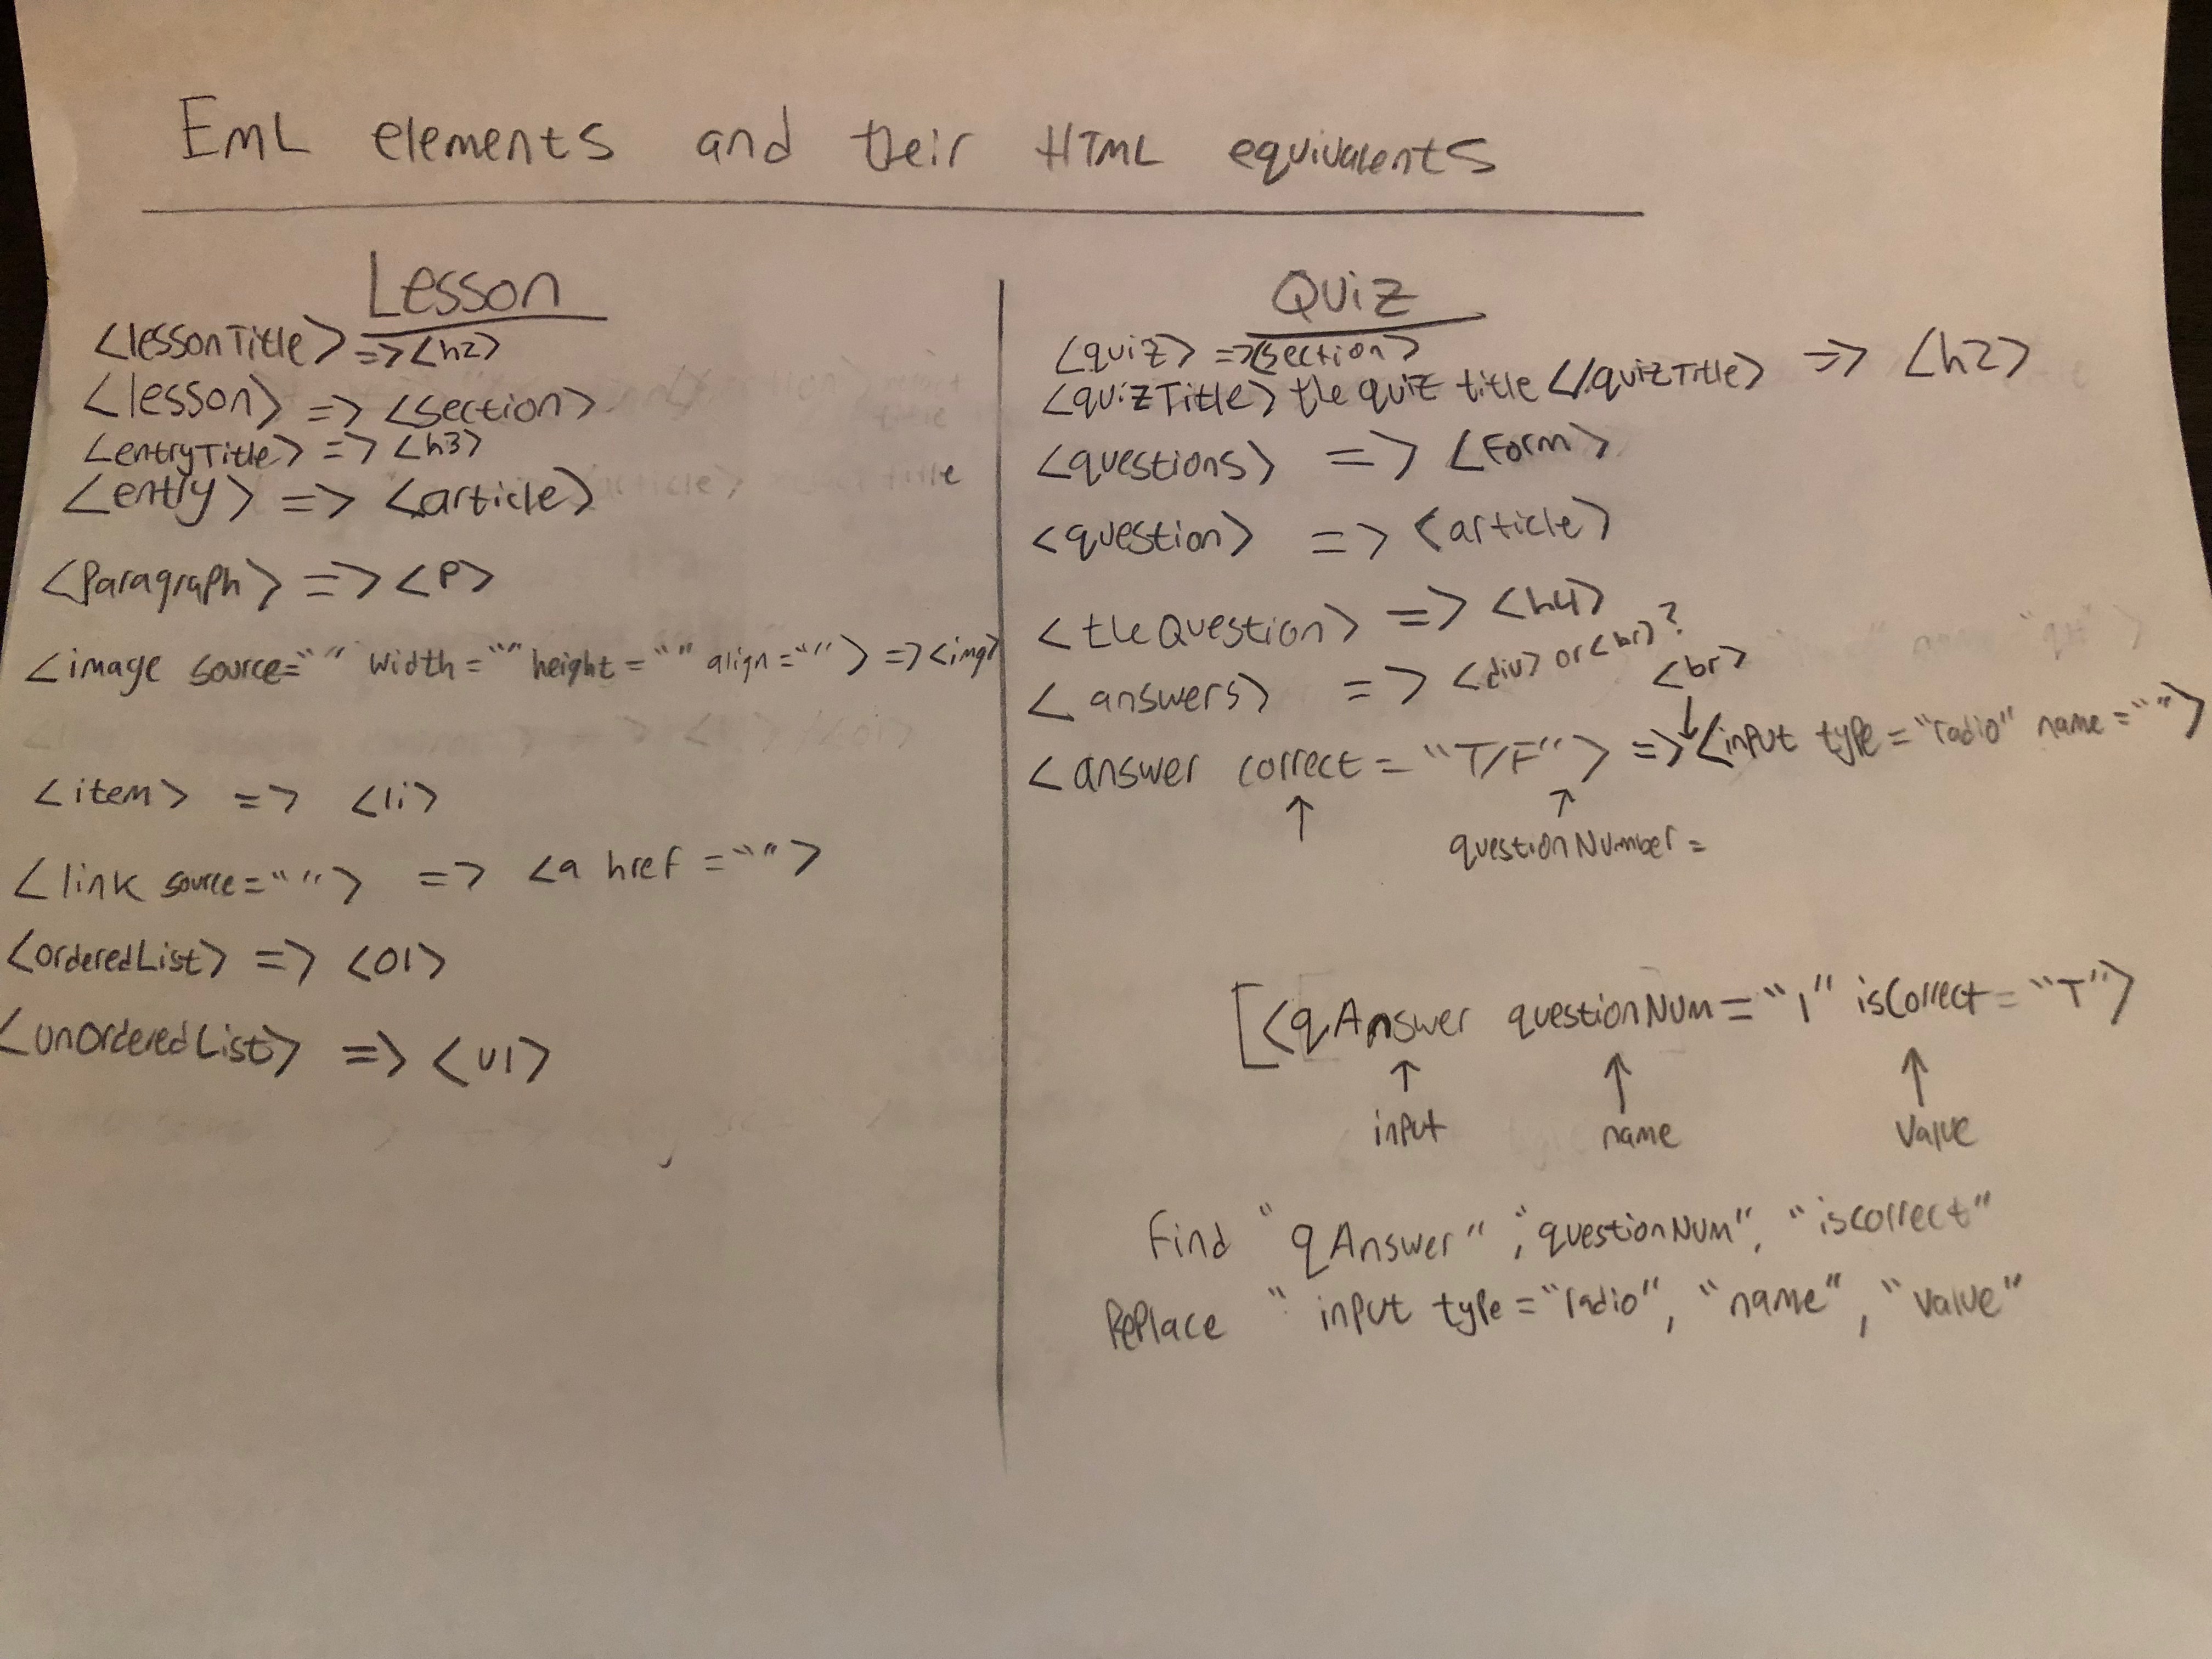 EML elements and their HTML equivalents
Lesson
<lessonTitle> => <h2>
<lesson> => <section>
<entryTitle> => <h3>
<entry> => <article>
<paragraph> => <p>
<image source="" width="" height="" align=""> => <img>
<item> => <li>
<link source=""> => <a href="">
<orderedList> => <ol>
<unOrderedList> => <ul>
Quiz
<quiz> => <section>
<quizTitle> the quiz title </quizTitle> => <h2>
<questions> => <form>
<question> => <article>
<theQuestion> => <h4>
<answers> => <div> or <br>?
<br>
↓
<answer correct="T/F"> => <input type="radio" name="">
↑ ↑
questionNumber=
[<qAnswer questionNum="1" isCorrect="T">
↑ ↑ ↑
input name value
Find "qAnswer", "questionNum", "iscorrect"
Replace "input type="radio", "name", "value"